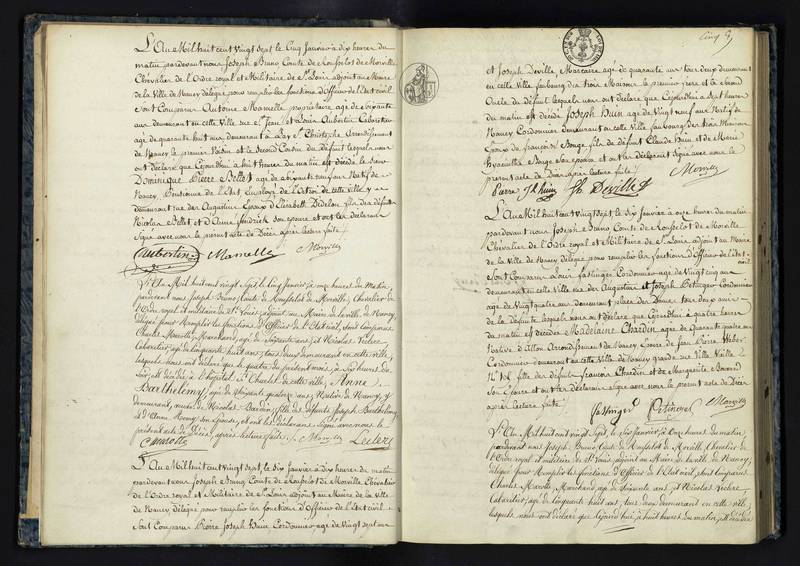 L'An Mil huit cent vingt sept le Cinq Janvier à dix heures du
matin pardevant nous Joseph Bruno Comte de Morville
Chevalier de l'Ordre royal et Militaire de St Louis adjoint au Maire
de la Ville de Nancy délégué pour remplir les fonctions d'Officier de l'Etat civil
Sont Comparus Antoine Mamelle propriétaire agé de soixante
ans demeurant en cette Ville rue St Jean et Louis Aubertin Cabaretier
agé de quarante huit ans demeurant à Arrondissement
de Nancy le premier Voisin et le second Cousin du défunt lesquels nous
ont déclaré que Cejourd'hui à huit heures du matin est décédé le sieur
Dominique Pierre Bellet agé de soixante neuf ans Natif de
Nancy, Pensionné de l'Etat Employé de l'Octroi de cette ville y
demeurant rue des Augustins Epoux d'Elisabeth Bidelon fils des défunts
Nicolas Bellet et d'Anne son epouse et ont les déclarans
Signé avec nous le présent acte de Décès après lecture faite
Aubertin Mamelle Morville
L'An Mil huit cent vingt sept le Cinq Janvier à onze heures du Matin,
pardevant nous Joseph Bruno Comte de Morville, Chevalier de
l'Ordre royal et militaire de St Louis, adjoint au Maire de la ville de Nancy,
délégué pour Remplir les fonctions d'Officier de l'Etat civil, sont Comparus
Charles Marotte, Marchand, agé de soixante ans, et Nicolas Leclerc
Cabaretier, agé de cinquante huit ans, tous deux demeurant en cette ville,
lesquels nous ont déclaré que le quatre du présent mois, à six heures du
soir, est décédée à l'hopital St Charles de cette ville, Anne
Barthélemy, agée de soixante quinze ans Native de Nancy, y
demeurant, veuve de Nicolas fille des défunts Joseph Barthélemy,
et d'Anne son Epouse, et ont les déclarans signé avec nous le
présent acte de Décès, après lecture faite.
Marotte Morville Leclerc
L'An Mil huit cent vingt sept, le six Janvier à dix heures du matin
pardevant nous Joseph Bruno Comte de Morville Chevalier
de l'Ordre royal et Militaire de St Louis adjoint au Maire de la ville
de Nancy délégué pour remplir les fonctions d'Officier de l'Etat civil
Sont Comparus Pierre Joseph Huin Cordonnier agé de vingt sept ans
Cinq
et Joseph Deville, Marcaire agé de quarante un ans tous deux demeurant
en cette Ville faubourg des trois Maisons le premier frere et le second
Oncle du défunt lesquels nous ont déclaré que Cejourd'hui à sept heures
du matin est décédé Joseph Huin agé de vingt neuf ans Natif de
Nancy Cordonnier demeurant en cette Ville faubourg des trois Maisons
Epoux de françoise fils du défunt Claude Huin et de Marie
son epouse et ont les déclarans signé avec nous le
présent acte de Décès après lecture faite
Pierre Jh huin Jh Deville Morville
L'An Mil huit cent vingt sept, le six Janvier à onze heures du matin
pardevant nous Joseph Bruno Comte de Morville
Chevalier de l'Ordre royal et Militaire de St Louis, adjoint au Maire
de la Ville de Nancy délégué pour remplir les fonctions d'Officier de l'Etat
civil
Sont Comparus Louis Cordonnier agé de vingt cinq ans
demeurant en cette Ville rue des Augustins et Joseph Cordonnier
agé de vingt quatre ans demeurant place des Dames tous deux amis
de la Défunte lesquels nous ont déclaré que Cejourd'hui à quatre heures
du matin est décédée Madelaine Chardin agée de Quarante quatre ans
Native d'Allon Arrondissement de Nancy Epouse de Jean Pierre Weber
Cordonnier demeurant en cette Ville de Nancy grande rue Ville Vieille
fille des défunts françois Chardin et de Marguerite
son Epouse et ont les déclarans signé avec nous le présent acte de Décès
après lecture faite
Morville
L'An Mil huit cent vingt sept, le six janvier, à onze heures du matin,
pardevant nous Joseph Bruno Comte de Morville Chevalier de
l'Ordre royal et militaire de St Louis, adjoint au Maire de la ville de Nancy,
délégué pour Remplir les fonctions d'Officier de l'Etat civil, sont Comparus
Charles Marotte, Marchand, agé de soixante ans, et Nicolas Leclerc
Cabaretier, agé de cinquante huit ans, tous deux demeurant en cette ville,
lesquels nous ont déclaré que cejourd'hui, à huit heures du matin, est décédée